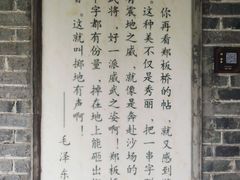 你再看郑板桥的帖，就又感到
。这种美不仅是秀丽，把一串字
有震地之威，就像是奔赴沙场的
武将，好一派威武之姿啊！郑板
字都有份量，掉在地上能砸出
，这就叫掷地有声啊！
——毛泽东